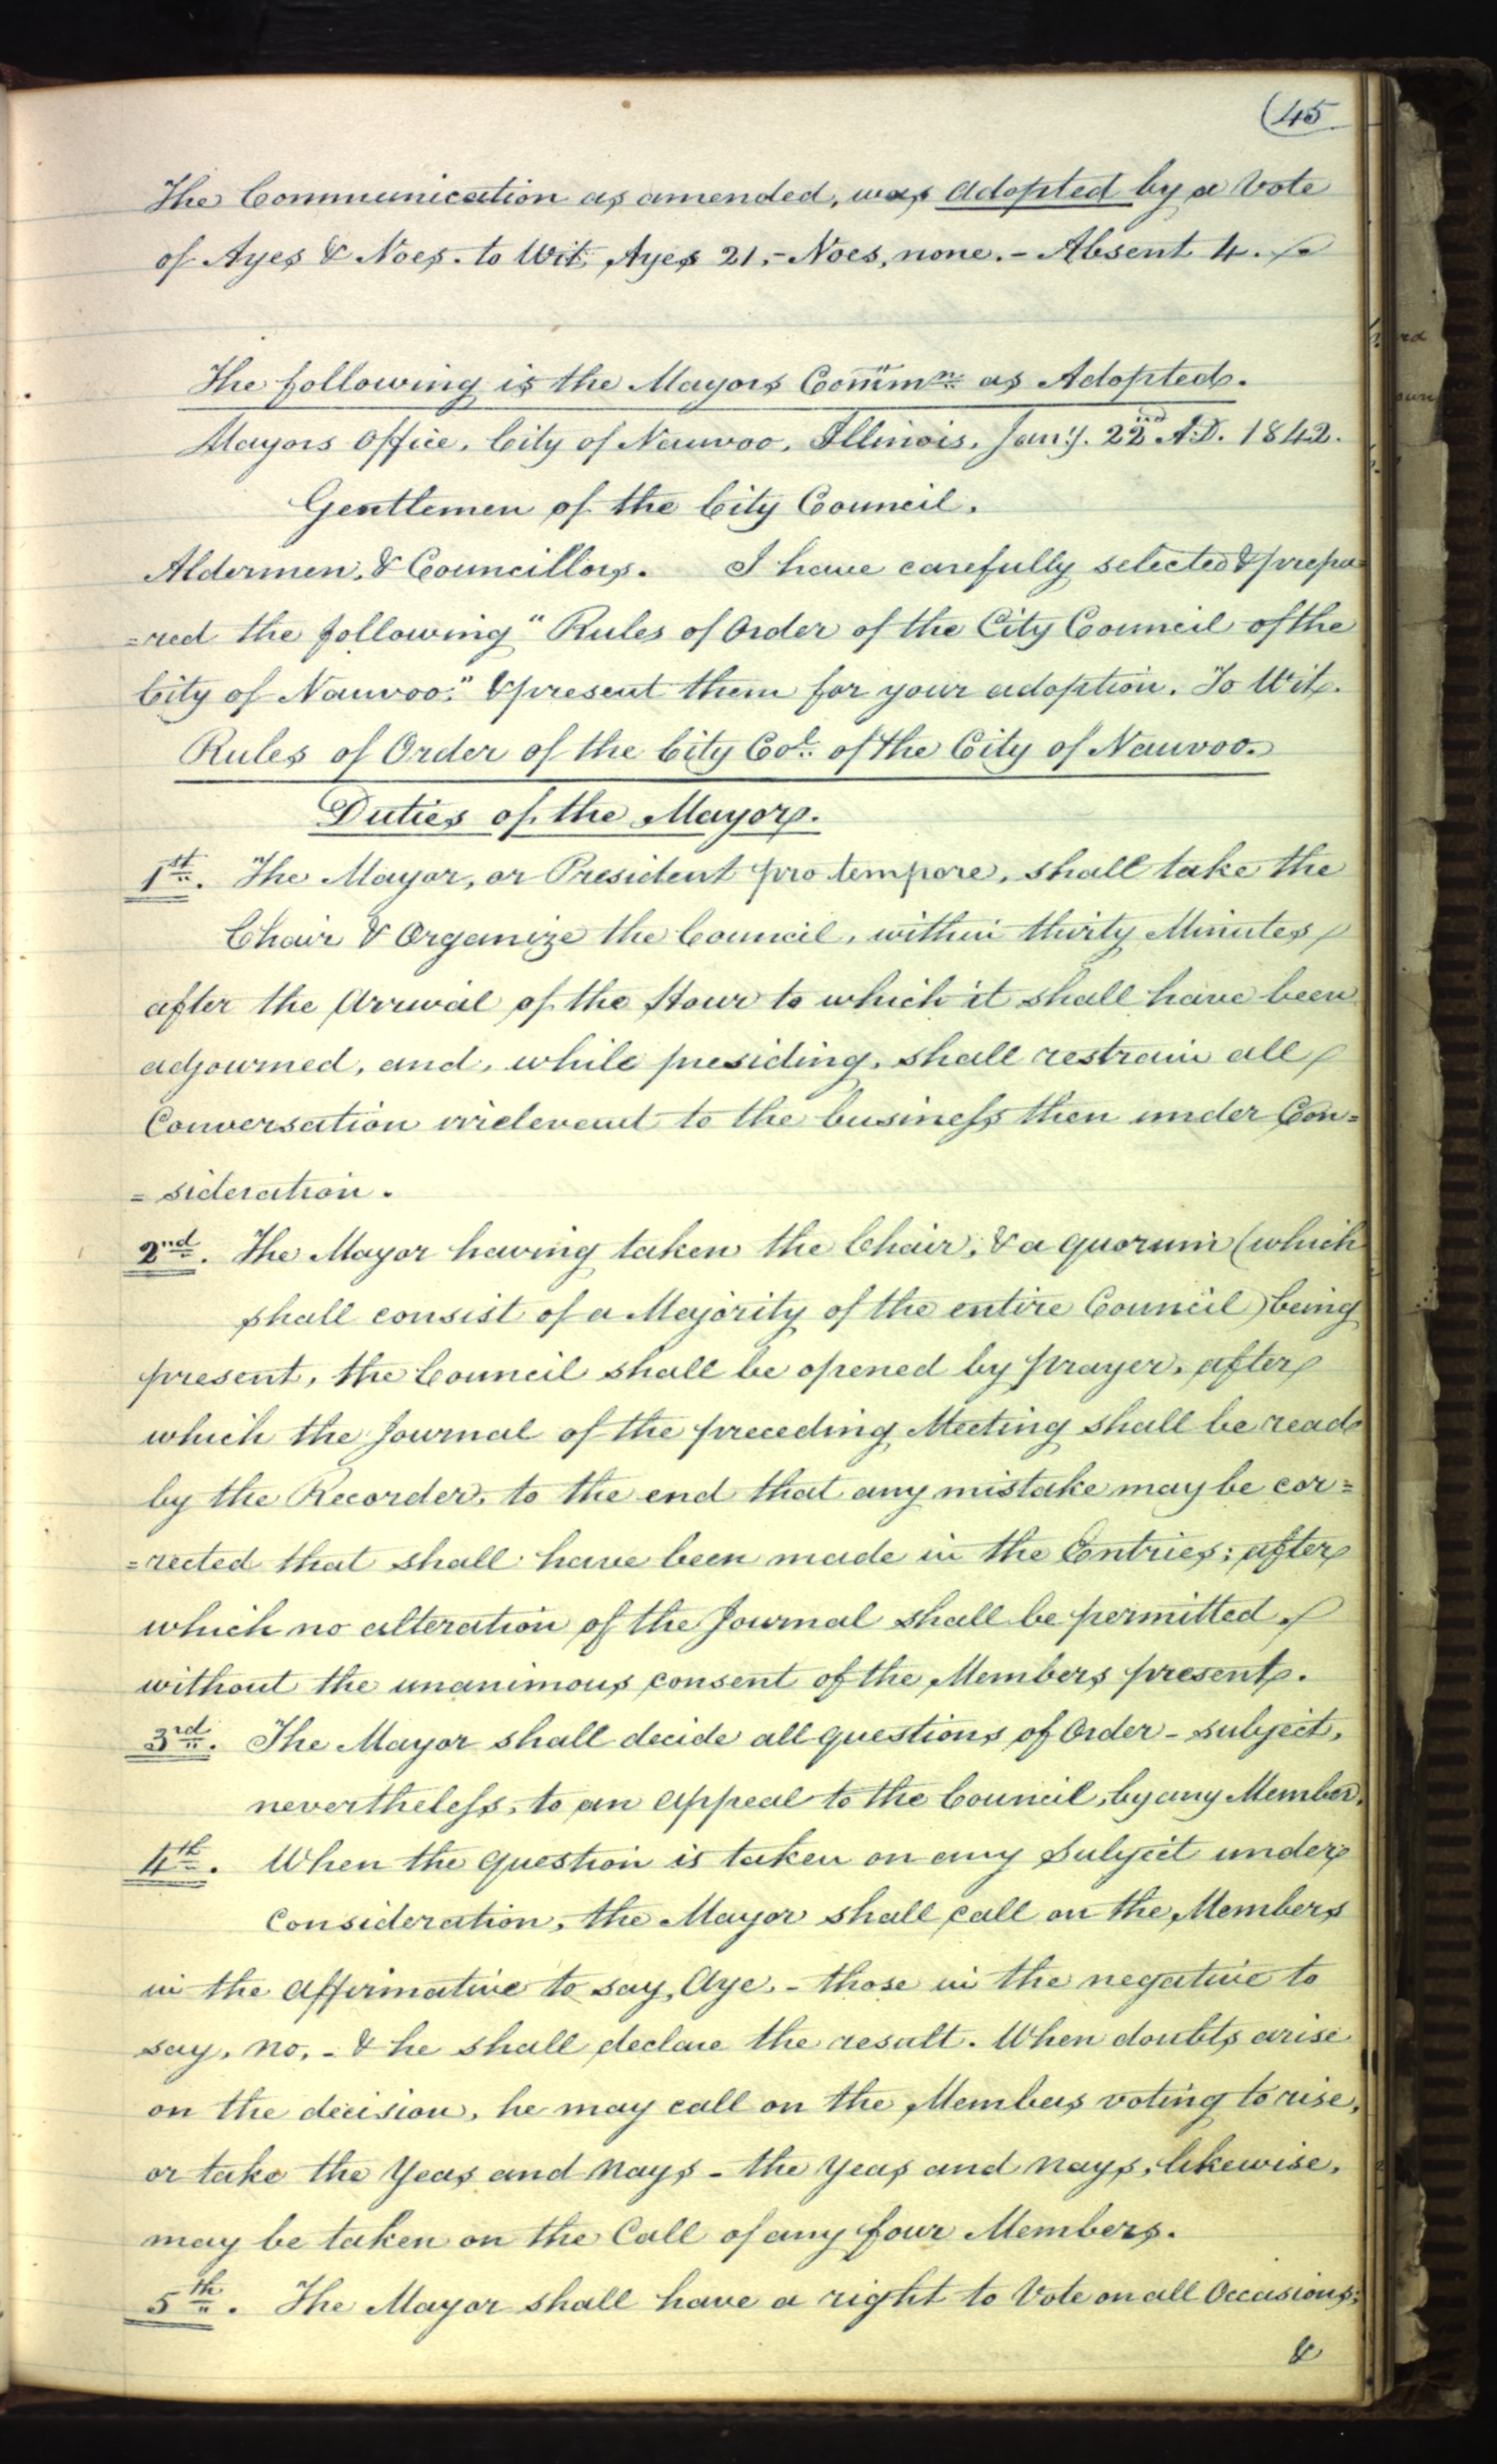 (45
The Communication as amended, was adopted by a Vote
of Ayes & Noes. to Wit, Ayes 21,- Noes, none.- Absent 4.
The following is the Mayors Commn. as Adopted.
Mayors Office, City of Nauvoo, Illinois, Jany. 22nd A.D. 1842.
Gentlemen of the City Council,
Aldermen, & Councillors. I have carefully selected & prepa
=red the following "Rules of Order of the City Council of the
City of Nauvoo," & present them for your adoption. To Wit.
Rules of Order of the City Col. of the City of Nauvoo.
Duties of the Mayor.
1st. The Mayor, or President pro tempore, shall take the
Chair & Organize the Council, within thirty Minutes
after the Arrival of the Hour to which it shall have been
adjourned, and, while presiding, shall restrain all
Conversation irrelevant to the business then under Con=
=sideration.
2nd. The Mayor having taken the Chair, & a quorum (which
shall consist of a Majority of the entire Council) being
present, the Council shall be opened by prayer, after
which the Journal of the preceding Meeting shall be read
by the Recorder, to the end that any mistake may be cor=
=rected that shall have been made in the Entries; after
which no alteration of the Journal shall be permitted
without the unanimous consent of the Members present.
3rd. The Mayor shall decide all questions of Order - subject,
nevertheless, to an appeal to the Council, by any Member.
4th. When the question is taken on any Subject under
Consideration, the Mayor shall call on the Members
in the affirmative to say, Aye,- those in the negative to
say, no,- & he shall declare the result. When doubts arise
on the decision, he may call on the Members voting to rise,
or take the Yeas and Nays - the Yeas and Nays, likewise,
may be taken on the Call of any four Members.
5th. The Mayor shall have a right to Vote on all Occasions;
&